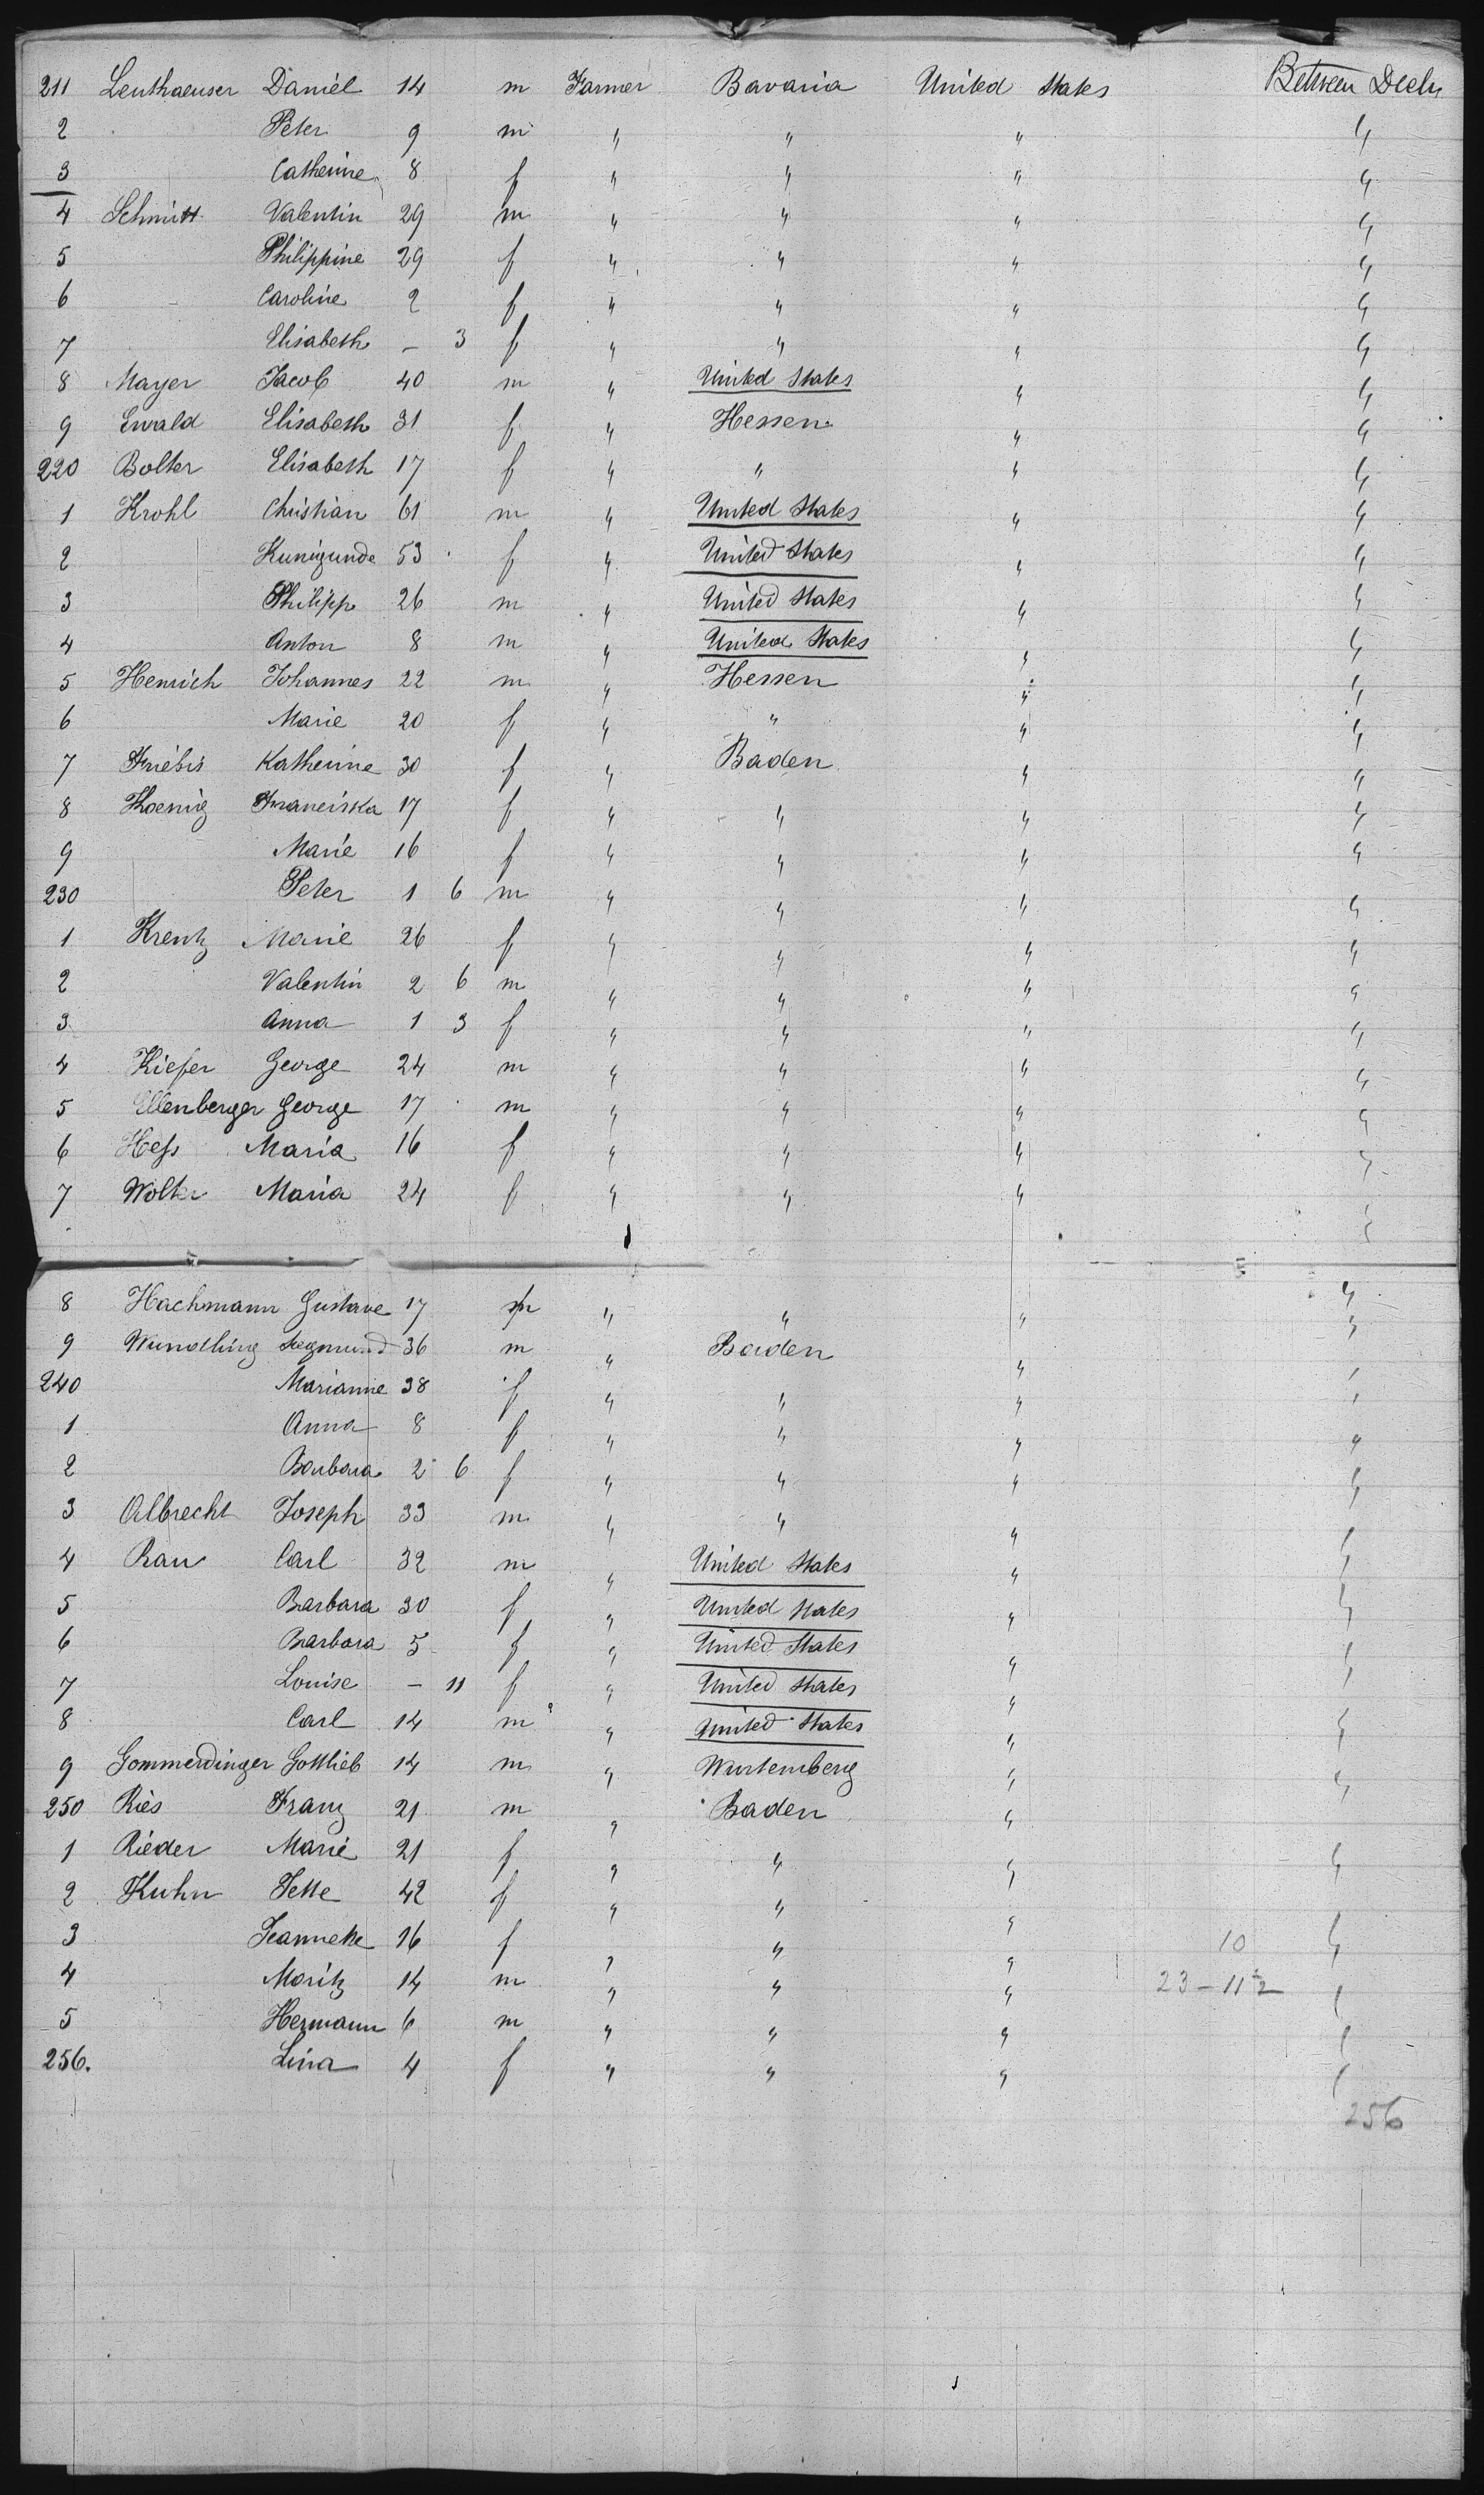 211 Leuthaeuser Daniel 14 m Farmer Bavaria United States Between Decks
2 Peter 9 m " " " "
3 Catherine 8 f " " " "
4 Schmitt Valentin 29 m " " " "
5 Philippine 29 f " " " "
6 Caroline 2 f " " " "
7 Elisabeth - 3 f " " " "
8 Mayer Jacob 40 m " United States " "
9 Ewald Elisabeth 31 f " Hessen " "
220 Bolter Elisabeth 17 f " " " "
1 Krohl Christian 61 m " United States " "
2 Kunigunde 53 f " United States " "
3 Philipp 26 m " United States " "
4 Anton 8 m " United States " "
5 Henrich Johannes 22 m " Hessen " "
6 Marie 20 f " " " "
7 Friebis Katherine 30 f " Baden " "
8 Koenig Franciska 17 f " " " "
9 Marie 16 f " " " "
230 Peter 1 6 m " " " "
1 Krentz Marie 26 f " " " "
2 Valentin 2 6 m " " " "
3 Anna 1 3 f " " " "
4 Kiefer George 24 m " " " "
5 Ellenberger George 17 m " " " "
6 Hess Maria 16 f " " " "
7 Wolter Maria 24 f " " " "
8 Hachmann Gustave 17 m " " " "
9 Wundling Segmund 36 m " Baden " "
240 Marianne 38 f " " " "
1 Anna 8 f " " " "
2 Barbara 2 6 f " " " "
3 Albrecht Joseph 33 m " " " "
4 Rau Carl 32 m " United States " "
5 Barbara 30 f " United States " "
6 Barbara 5 f " United States " "
7 Louise - 11 f " United States " "
8 Carl 14 m " United States " "
9 Gommerdinger Gottlieb 14 m " Wurtemberg " "
250 Ries Franz 21 m " Baden "
1 Rieder Marie 21 f " " " "
2 Kuhn Jette 42 f " " "
3 Jeannette 16 f " " " 10 "
4 Moritz 14 m " " " 23 - 11 1/2 "
5 Hermann 6 m " " " "
256. Lina 4 f " " " "
256